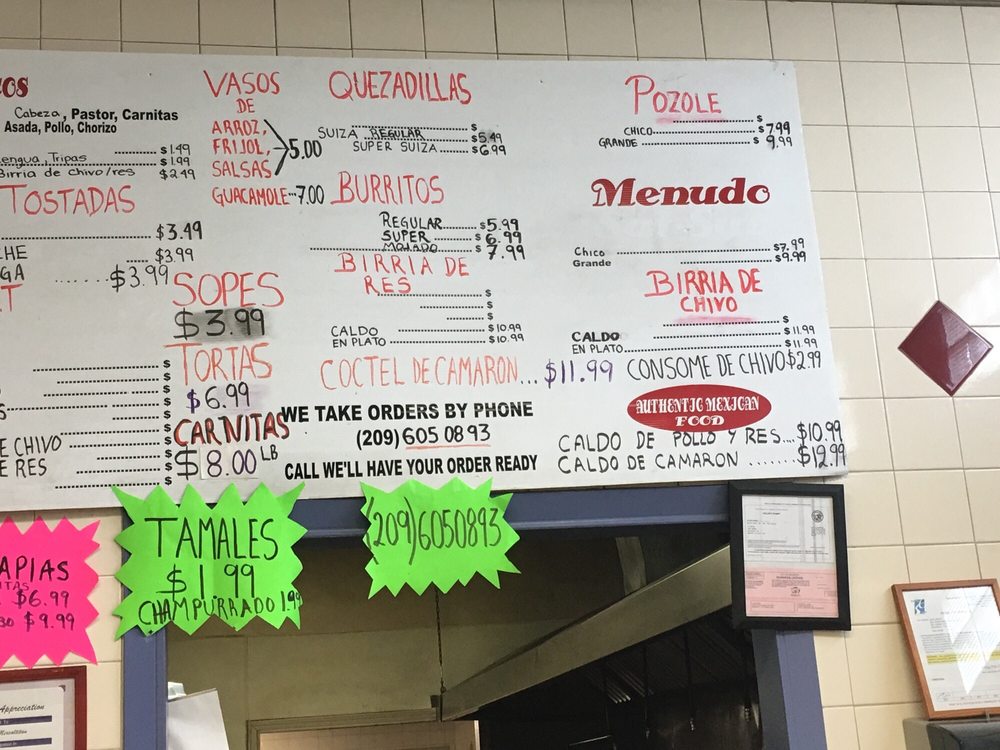 OS
Cabeza, Pastor, Carnitas
Asada, Pollo, Chorizo
$1.49
engua, Tripas $1.99
Birria de chivo/res $2.49
TOSTADAS
$3.49
CHE $3.99
GA $3.99
T
$
$
$
S $
E CHIVO $
E RES $
$
VASOS
DE
ARROZ,
FRIJOL, 5.00
SALSAS
GUACAMOLE 7.00
SOPES
$3.99
TORTAS
$6.99
CARNITAS
$8.00 LB
QUEZADILLAS
$
SUIZA REGULAR $5.49
SUPER SUIZA $6.99
BURRITOS
REGULAR $5.99
SUPER $6.99
MOJADO $7.99
BIRRIA DE
RES
$
$
$
CALDO $10.99
EN PLATO $10.99
COCTEL DE CAMARON... $11.99
WE TAKE ORDERS BY PHONE
(209) 605 0893
CALL WE'LL HAVE YOUR ORDER READY
POZOLE
$
CHICO $7.99
GRANDE $9.99
Menudo
Chico $7.99
Grande $9.99
BIRRIA DE
CHIVO
$
CALDO $11.99
EN PLATO $11.99
CONSOME DE CHIVO $2.99
AUTHENTIC MEXICAN
FOOD
CALDO DE POLLO Y RES.... $10.99
CALDO DE CAMARON ....... $12.99
APIAS
$6.99
$9.99
TAMALES
$1.99
CHAMPURRADO 1.99
(209)6050893
Appreciation